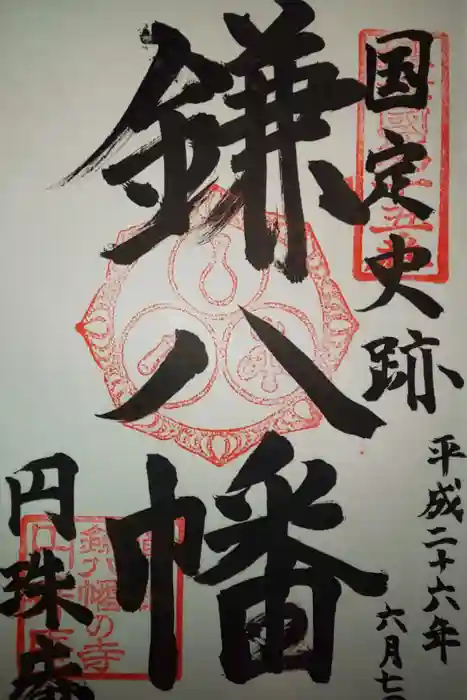 国定史跡
鎌八幡
円珠庵
平成二十六年
六月七
鎌八幡の寺